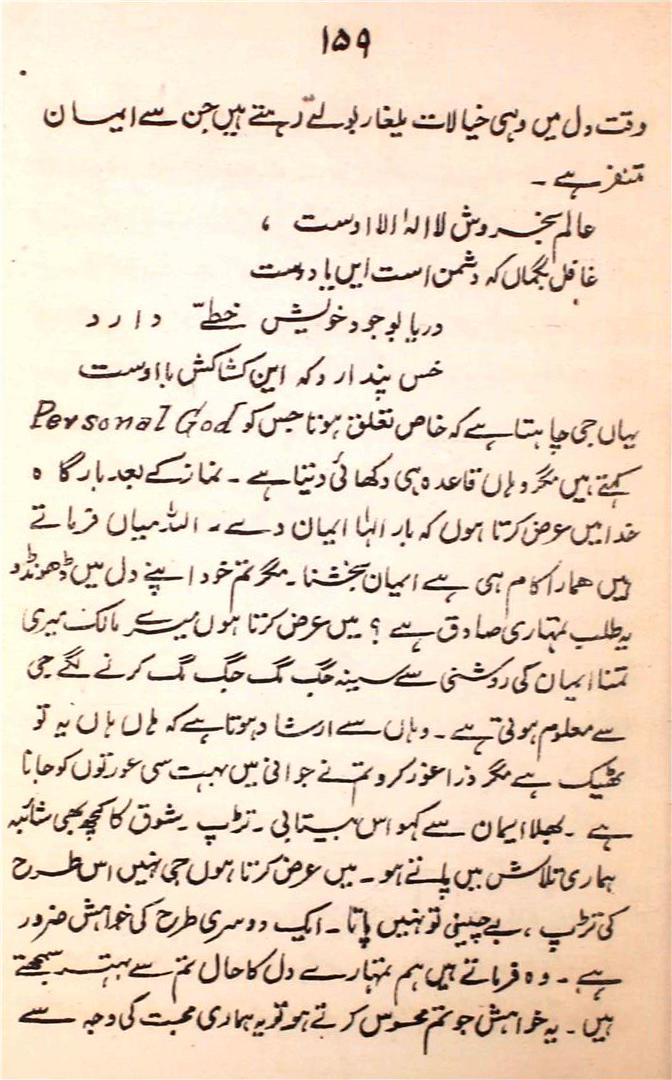 ۱۵۹
وقت دل میں وہی خیالات یلغار بولتے رہتے ہیں جن سے ایمان
متنفر ہے ۔
عالم بخروش لا الہ الا اوست ،
غافل بگماں کہ دشمن است ایں یا دوست
دریا بوجود خویش خطے دارد
خس پندارد کہ این کشاکش با اوست
یہاں جی چاہتا ہے کہ خاص تعلق ہوتا جس کو Personal God
کہتے ہیں مگر وہاں قاعدہ ہی دکھائی دیتا ہے ۔ نماز کے بعد بارگاہ
خدا میں عرض کرتا ہوں کہ بار الٰہا ایمان دے ۔ اللہ میاں فرماتے
ہیں ہمارا کام ہی ہے ایمان بخشنا ۔ مگر تم خود اپنے دل میں ڈھونڈو
یہ طلب تمہاری صادق ہے ؟ میں عرض کرتا ہوں میرے مالک میری
تمنا ایمان کی روشنی سے سینہ جگ مگ جگ مگ کرنے لگے جی
سے معلوم ہوتی ہے ۔ وہاں سے ارشاد ہوتا ہے کہ ہاں ہاں یہ تو
ٹھیک ہے مگر ذرا غور کرو تم نے جوانی میں بہت سی عورتوں کو چاہا
ہے ۔ بھلا ایمان سے کہو اس بیتابی ۔ تڑپ ۔ شوق کا کچھ بھی شائبہ
ہماری تلاش میں پاتے ہو ۔ میں عرض کرتا ہوں جی نہیں اس طرح
کی تڑپ ، بے چینی تو نہیں پاتا ۔ ایک دوسری طرح کی خواہش ضرور
ہے ۔ وہ فرماتے ہیں ہم تمہارے دل کا حال تم سے بہتر سمجھتے
ہیں ۔ یہ خواہش جو تم محسوس کرتے ہو تو یہ ہماری محبت کی وجہ سے